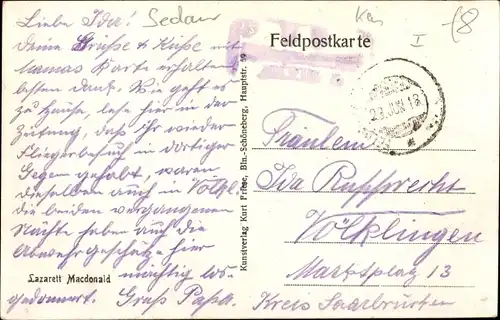 Liebe Ida! Sedan
Deine Grüße & Küße mit
Mamas Karte erhalten
besten Dank. Wie geht es
zu Hause, lese hier in der
Zeitung, daß Ihr wieder
Fliegerbesuch in dortiger
Gegend gehabt, waren
dieselben auch in Völkl.
die beiden vergangenen
Nächte haben auch die
Abwehrgeschütze hier
mächtig los-
Lazarett Macdonald
gedonnert. Gruß Papa.
Kunstverlag Kurt Friese, Bln.-Schöneberg, Hauptstr. 99
Feldpostkarte
I
18
Fräulein
Ida Rupprecht
Völklingen
Marktplatz 13
Kreis Saarbrücken